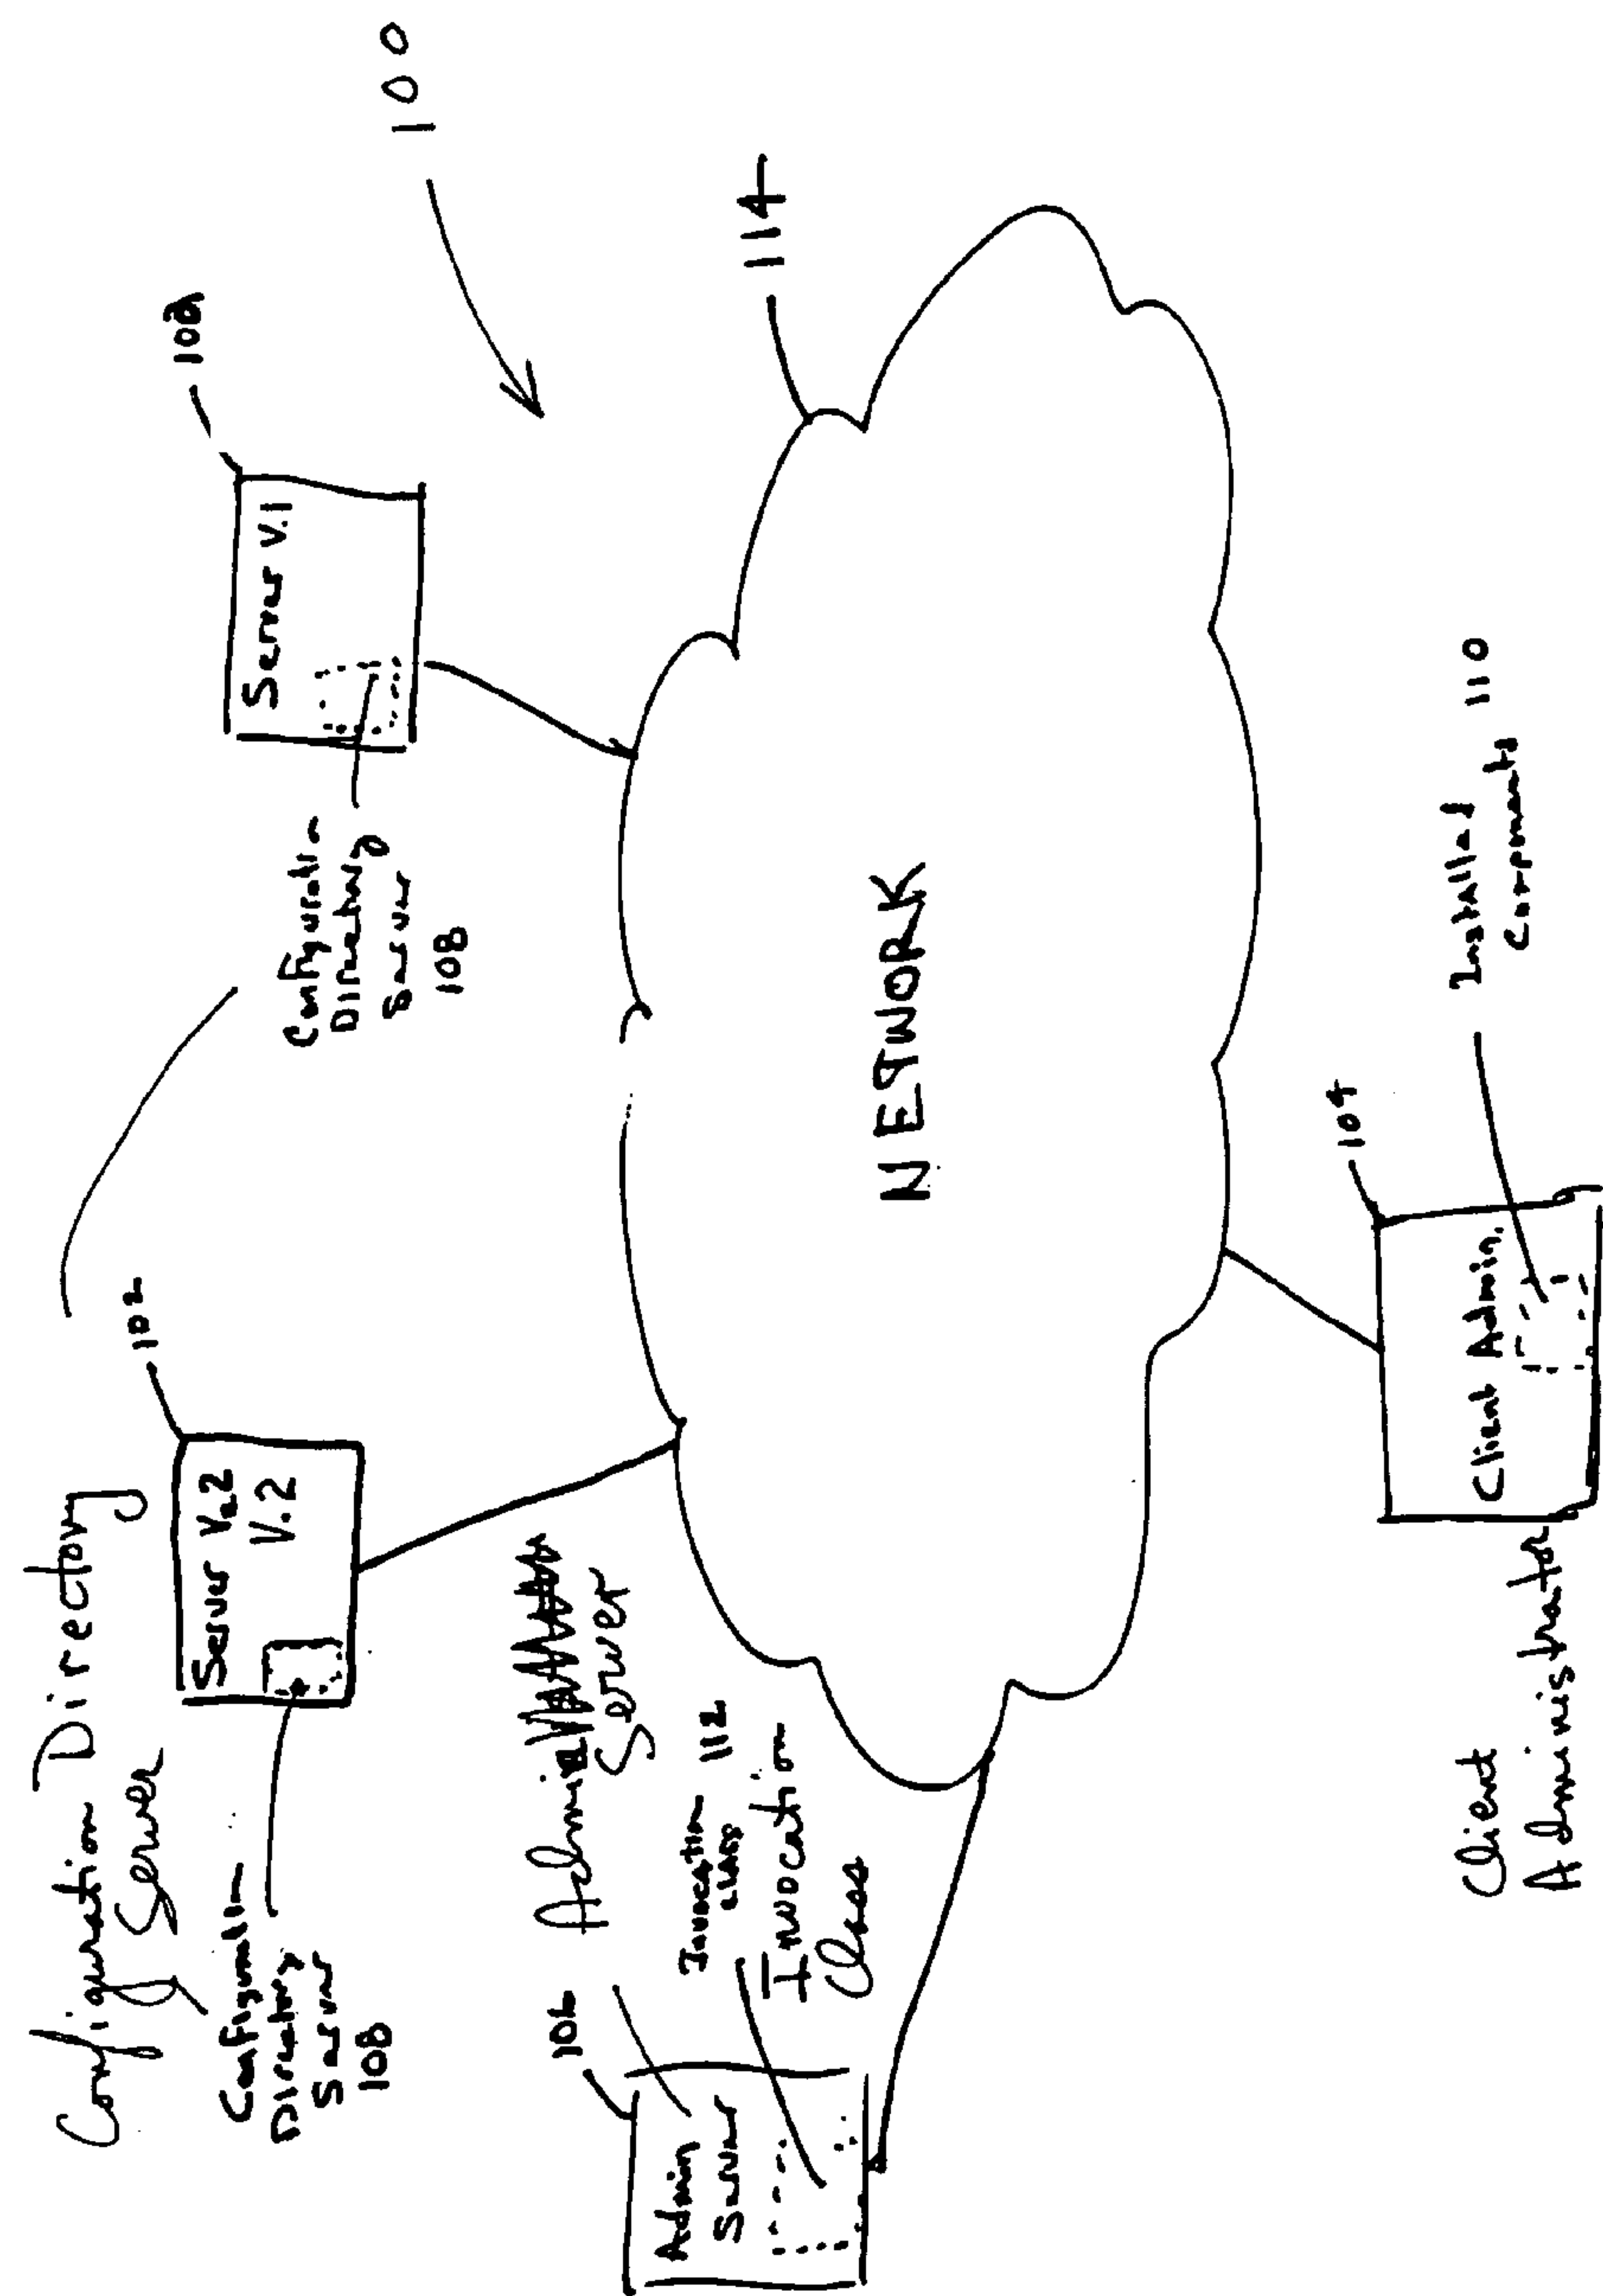 100
102
Server V.1
Configuration
Directory
Server
108
114
Configuration Directory
Server
102
Server V.2
V.2
Configuration
Directory
Server
108
NETWORK
Admin
Server
106
Invocation 112
class
Invocation
Class
Admin
Server
104
Client Admin.
Installed 110
Components
Client
Administrator